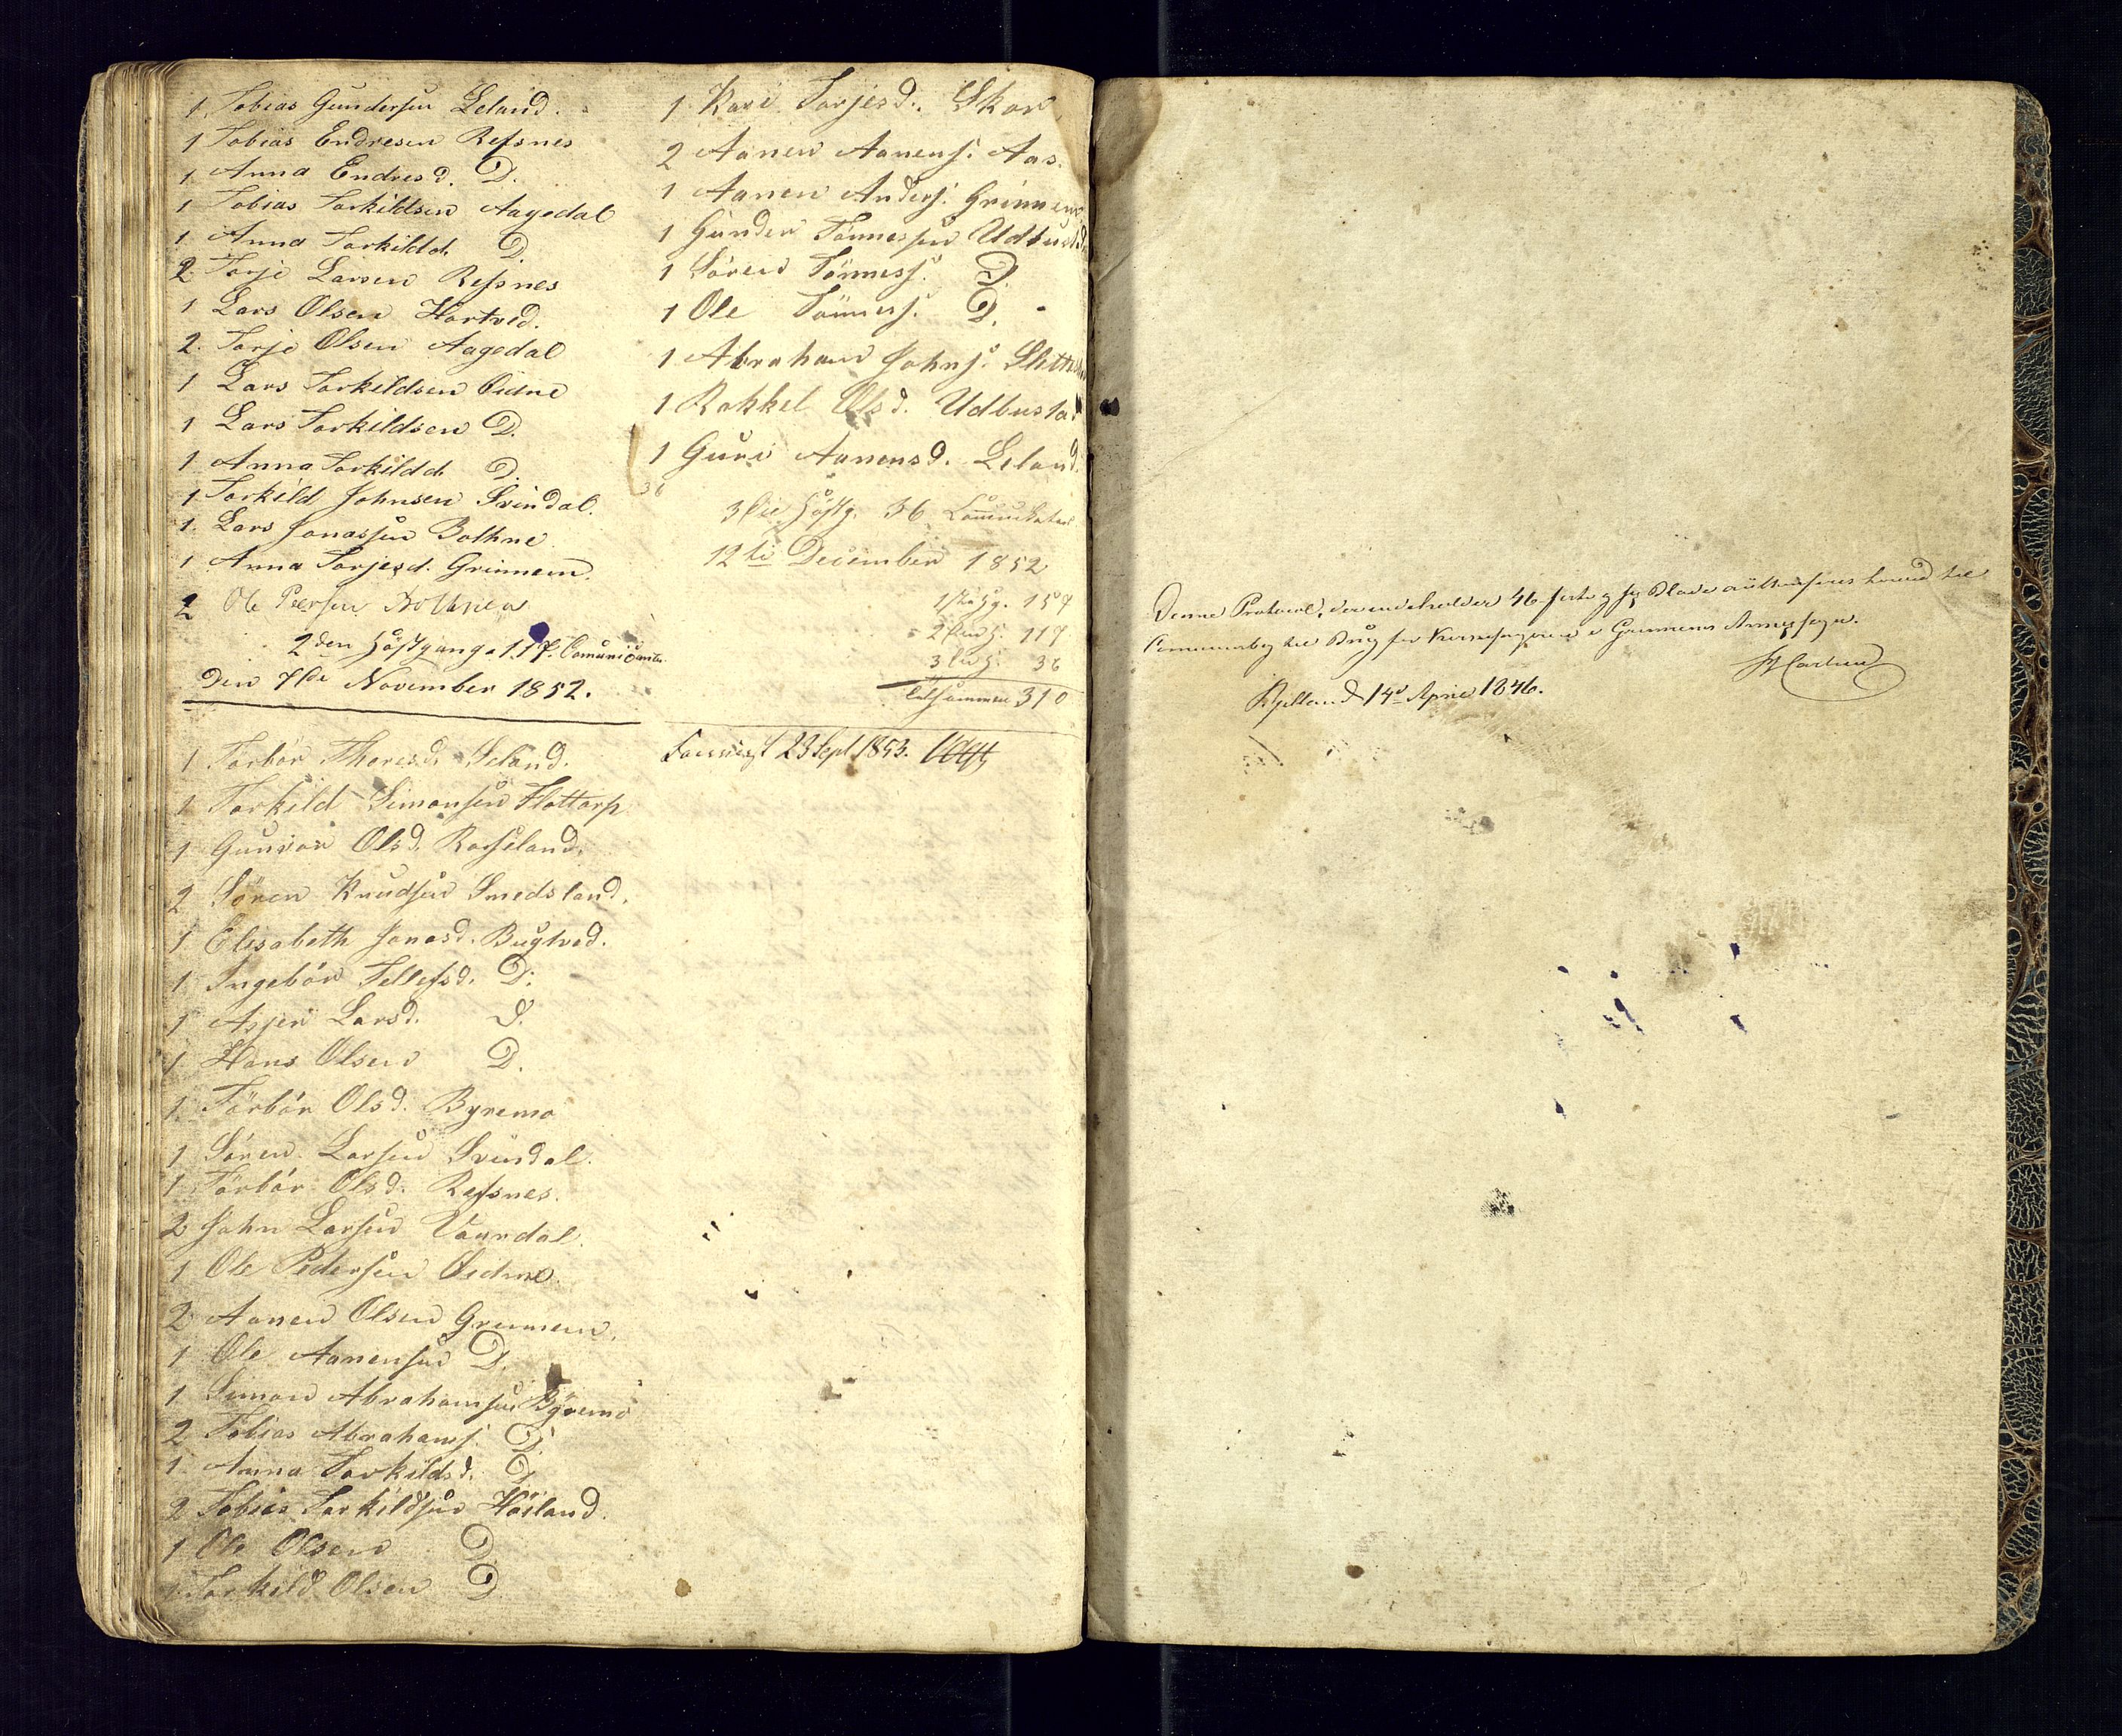 1 Tobias Gundersen Leland.
1 Tobias Endresen Refsnes
1 Anna Endresd. D.
1 Tobias Torkildsen Aagedal
1 Anna Torkildd. D.
2 Torje Larsen Refsnes
1 Lars Olsen Hartved.
2. Torje Olsen Aagedal
1 Lars Torkildsen Eidne
1 Lars Torkildsen D.
1 Anna Torkildd. D.
1 Torkild Johnsen Svindal.
1. Lars Jonassen Bothne
1 Anna Torjesd. Grinnem.
2 Ole Peersen Bothnea
2den Höstgang. 117. Comunicanter
Den 7de November 1852.
1 Torbör Thoresd. Leland.
1 Torkild Simonsen Flottorp
1 Gunvor Olsd. Rosseland.
2 Sören Knudsen Smedsland.
1 Elisabeth Jonasd. Bugtved.
1 Ingebör Tellefsd. D.
1 Asjer Larsd. D.
1 Hans Olsen D.
1 Törbör Olsd. Byremo
1 Sören Larsen Svindal.
1 Törbör Olsd. Refsnes.
2 John Larsen Vaardal.
1 Ole Pedersen Eidne.
2 Aanen Olsen Grinnem.
1 Ole Aanensen D.
1 Simon Abrahamsen Byremo
2 Tobias Abrahams. D.
1 Anna Torkildsd. D.
2 Tobias Torkildsen Höiland.
1 Ole Olsen D.
1 Torkild Olsen D.
1 Kari Torjesd. Skov
2 Aanen Aanens. Aas.
1 Aanen Anders. Grinnem
1 Gunder Tönnessen Udbustad
1 Sören Tönness. D.
1 Ole Tönness. D.
1 Abraham Johns.
1 Rakkel Olsd. Udbustad
1 Guri Aanensd. Leland.
36
3die Höstg. 36 Communikanter
12te December 1852
1ste Hg. 157
2den H. 117
3die H. 36
tilsammen 310
23 Sept 1853.
Denne Protocol, der indeholder 46 forty sex Blade autoriseres herved til
til Brug for i Grinnems Annexsogn.
Kjelland d 14d April 1846.